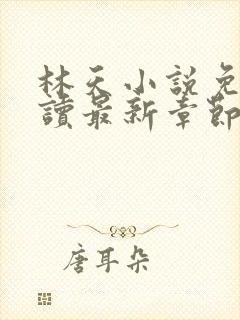 林天小説免
讀最新章節
唐耳朵